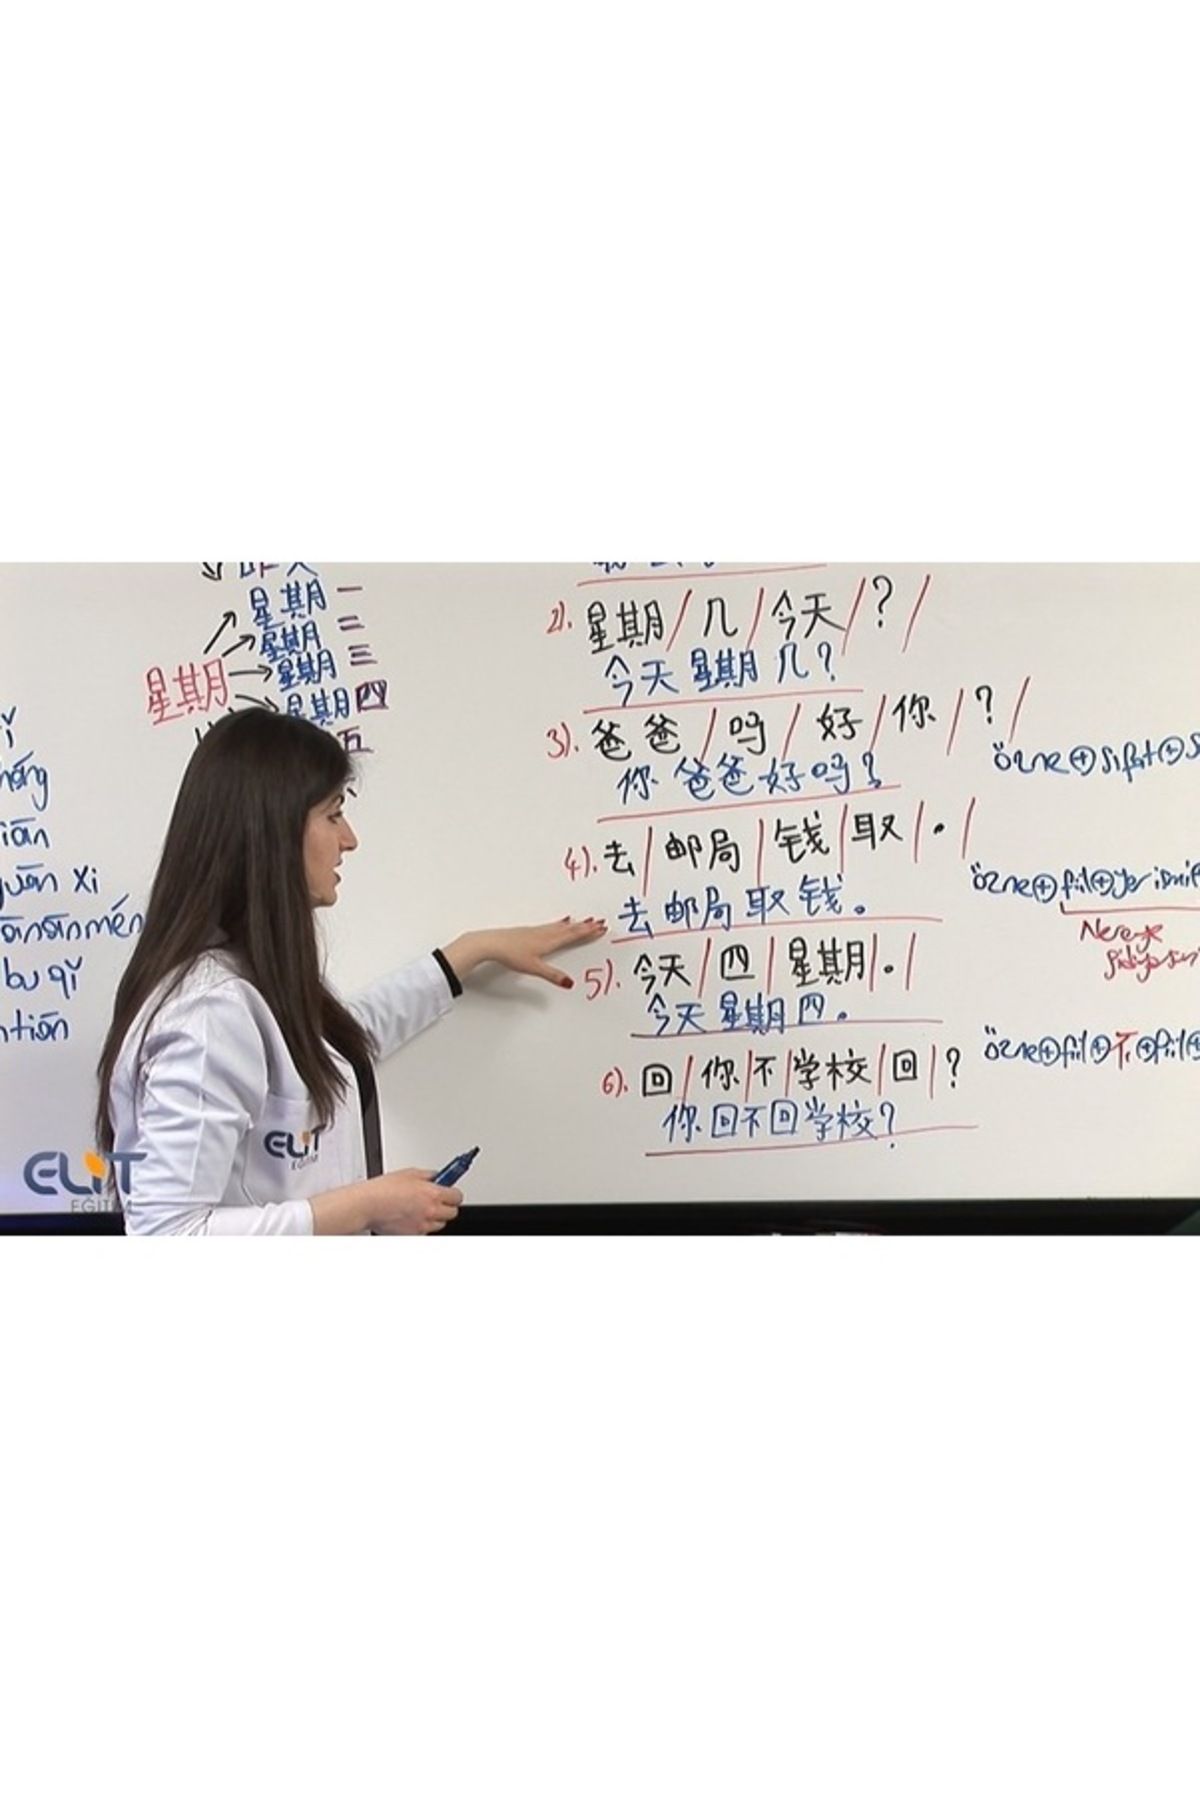 星期一
星期二
星期三
星期四
五
星期
bu qì
2). 星期 / 几 / 今天 / ? /
今天星期几?
3). 爸爸 / 吗 / 好 / 你 / ? /
你爸爸好吗?
4). 去 / 邮局 / 钱 / 取 / 。 /
去邮局取钱。
5). 今天 / 四 / 星期 / 。 /
今天星期四。
6). 回 / 你 / 不 / 学校 / 回 / ?
你回不回学校?
özne ⊕ sıfat ⊕
özne ⊕ fiil ⊕ yer
Nereye
özne ⊕ fiil ⊕ 不 ⊕ fiil ⊕
ELiT
EĞİTİM
ELiT
EĞİTİM